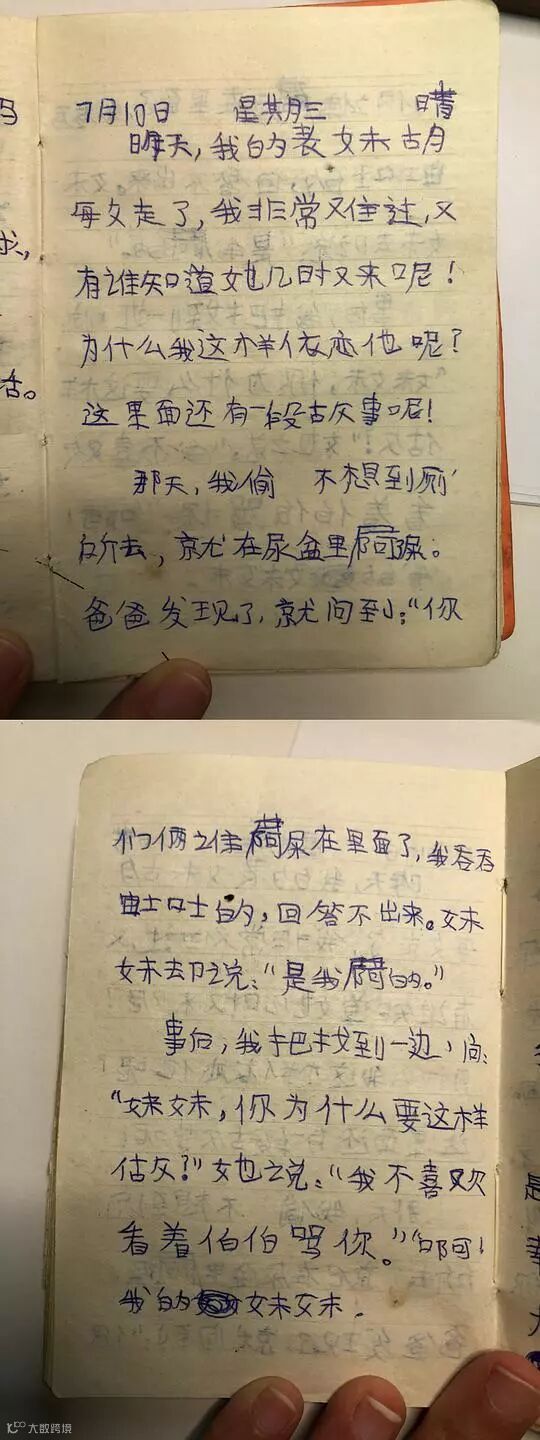 7月10日 星期三 晴
昨天,我的表妹胡
每文走了,我非常难过,又
有谁知道她几时又来呢!
为什么我这样依恋他呢?
这里面还有一段故事呢!
那天,我偷 不想到厕
所去,就在尿盆里屙屎。
爸爸发现了,就问到:“你
们俩谁屙屎在里面了,我吞吞
吐吐的,回答不出来。妹
妹却说:“是我屙的。”
事后,我把找到一边,问:
“妹妹,你为什么要这样
做?”她说:“我不喜欢
看着伯伯骂你。”“啊!
我的妹妹.
大数跨境